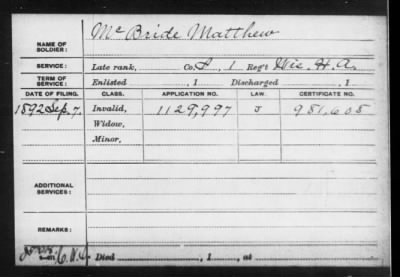 NAME OF SOLDIER: McBride Matthew
SERVICE: Late rank, Co. I, 1 Reg't Wis. H. A.
TERM OF SERVICE: Enlisted , 1 Discharged , 1
DATE OF FILING. CLASS. APPLICATION NO. LAW. CERTIFICATE NO.
1892 Sep. 7. Invalid, 1129,997 J 981,608
Widow,
Minor,
ADDITIONAL SERVICES:
REMARKS:
Died , 1 , at